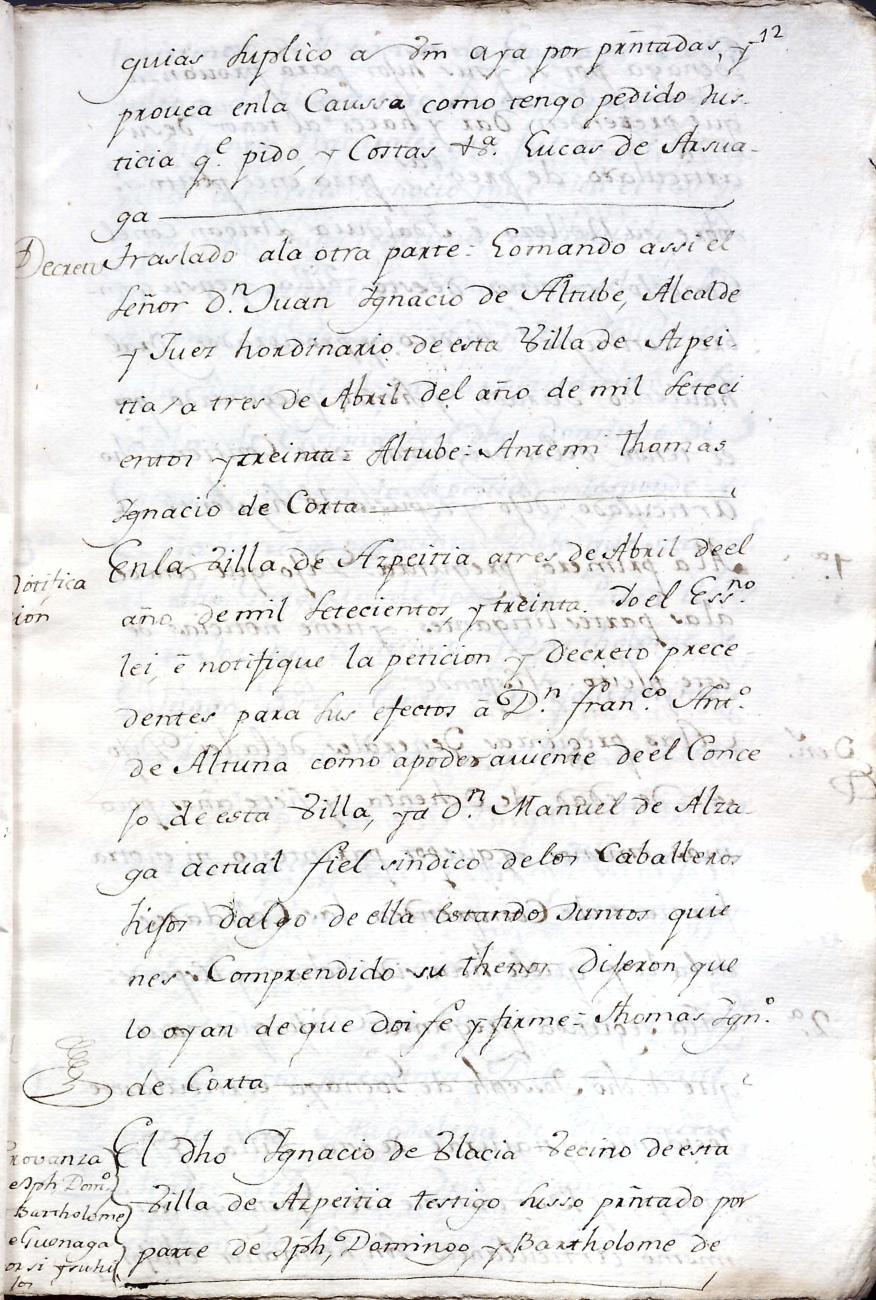 12
guias suplico a Vm aya por prñtadas, y
provea enla Caussa como tengo pedido Jus-
ticia q.e pido, y Costas &.a Lucas de Arsua-
ga
Decreto
traslado ala otra parte: Lomando assi el
señor D.n Juan Ignacio de Altube, Alcalde
y Juez hordinario de esta Villa de Azpei-
tia, a tres de Abril del año de mil seteci
entos y treinta: Altube: Antemi Thomas
Ignacio de Corta
Notifica
ción
Enla Villa de Azpeitia atres de Abril deel
año de mil setecientos, y treinta. Yo el Ess.no
lei, ē notifique la peticion y Decreto prece
dentes para sus efectos ā D.n fran.co Ant.o
de Altuna como apoderaviente deel Conce
jo de esta Villa, ya D.n Manuel de Alza-
ga actual fiel sindico delos Caballeros
hijos dalgo de ella estando Juntos quie
nes Comprendido su thenor Dijeron, que
lo oyan de que doi fe y firme: Thomas Ign.o
de Corta
Provanza
e Jph Dom.o
Bartholome
e Guenaga
or si y suhi
jos
El dho Ignacio de Vlacia Vecino de esta
Villa de Azpeitia testigo susso prñtado por
parte de Jph, Domingo, y Bartholome de